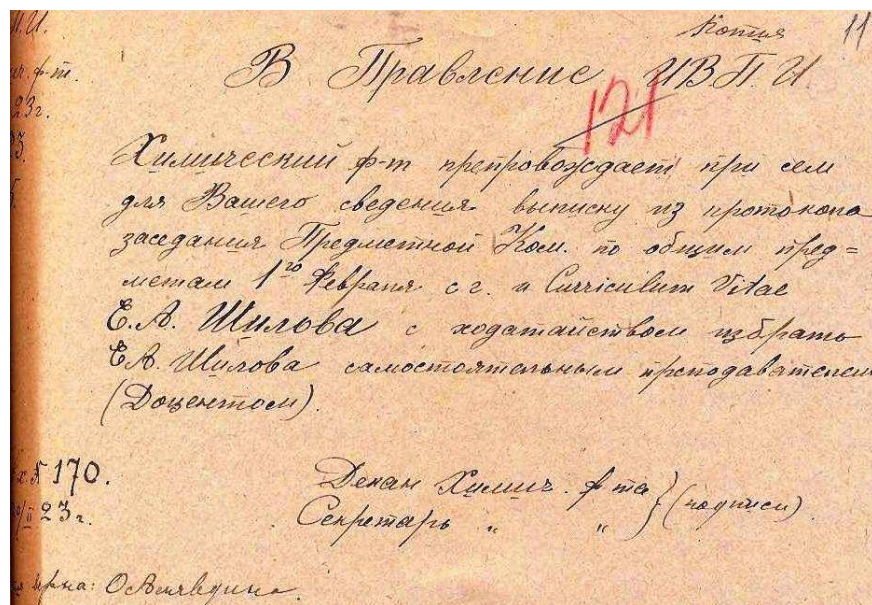 Копия 11
В Правление И.В.П.И.
121
Химический ф-т препровождает при сем
для Вашего сведения выписку из протокола
заседания Предметной Ком. по общим пред=
метам 1го Февраля с.г. и Curriculum Vitae
Е.А. Шилова с ходатайством избрать
Е.А. Шилова самостоятельным преподавателем
(Доцентом).
170.
23г.
Декан Химич. ф-та } (подписи)
Секретарь " "